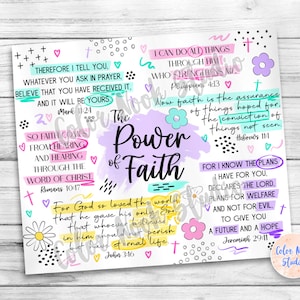 THEREFORE I TELL YOU,
WHATEVER YOU ASK IN PRAYER,
BELIEVE THAT YOU HAVE RECEIVED IT,
AND IT WILL BE YOURS
Mark 11:24
I CAN DO ALL THINGS
THROUGH HIM
WHO STRENGTHENS ME
Philippians 4:13
Now faith is the assurance
of things hoped for,
the conviction of
things not seen
Hebrews 11:1
The
Power
of
Faith
SO FAITH COMES
FROM HEARING
AND HEARING
THROUGH THE
WORD OF CHRIST
Romans 10:17
FOR I KNOW THE PLANS
I HAVE FOR YOU,
DECLARES THE LORD,
PLANS FOR WELFARE
AND NOT FOR EVIL,
TO GIVE YOU
A FUTURE AND A HOPE
Jeremiah 29:11
For God so loved the world
that he gave his only
in him
eternal life
John 3:16
Color Moon
Studio